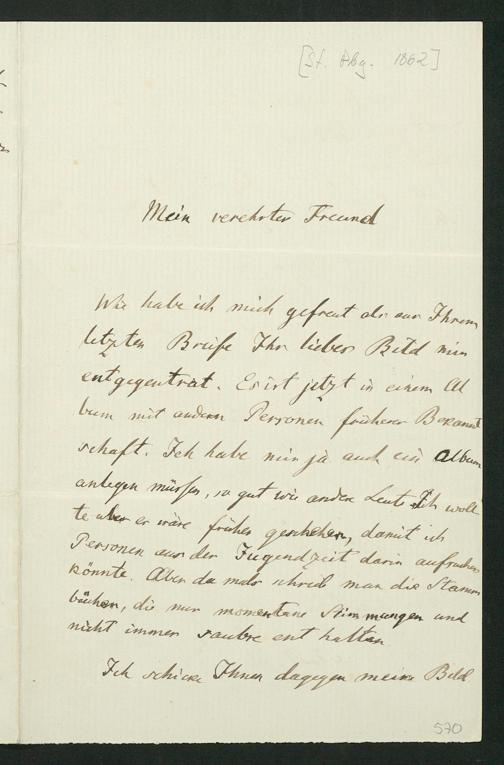 [St. Abg. 1862]
Mein verehrter Freund
Wie habe ich mich gefreut als aus Ihrem
letzten Breife Ihr liebes Bild mir
entgegentrat. Es ist jetzt in einem Al
bum mit andern Personen früherer Bekannt
schaft. Ich habe mir ja auch ein Album
anlegen müssen, so gut wie andere Leute. Ich woll
te aber er wäre früher geschehen, damit ich
Personen aus der Jugendzeit darin aufsuchen
könnte. Aber damals schrieb man die Stamm
bücher, die nur momentane Stimmungen und
nicht immer saubre enthalten
Ich schicke Ihnen dagegen meine Bild
570